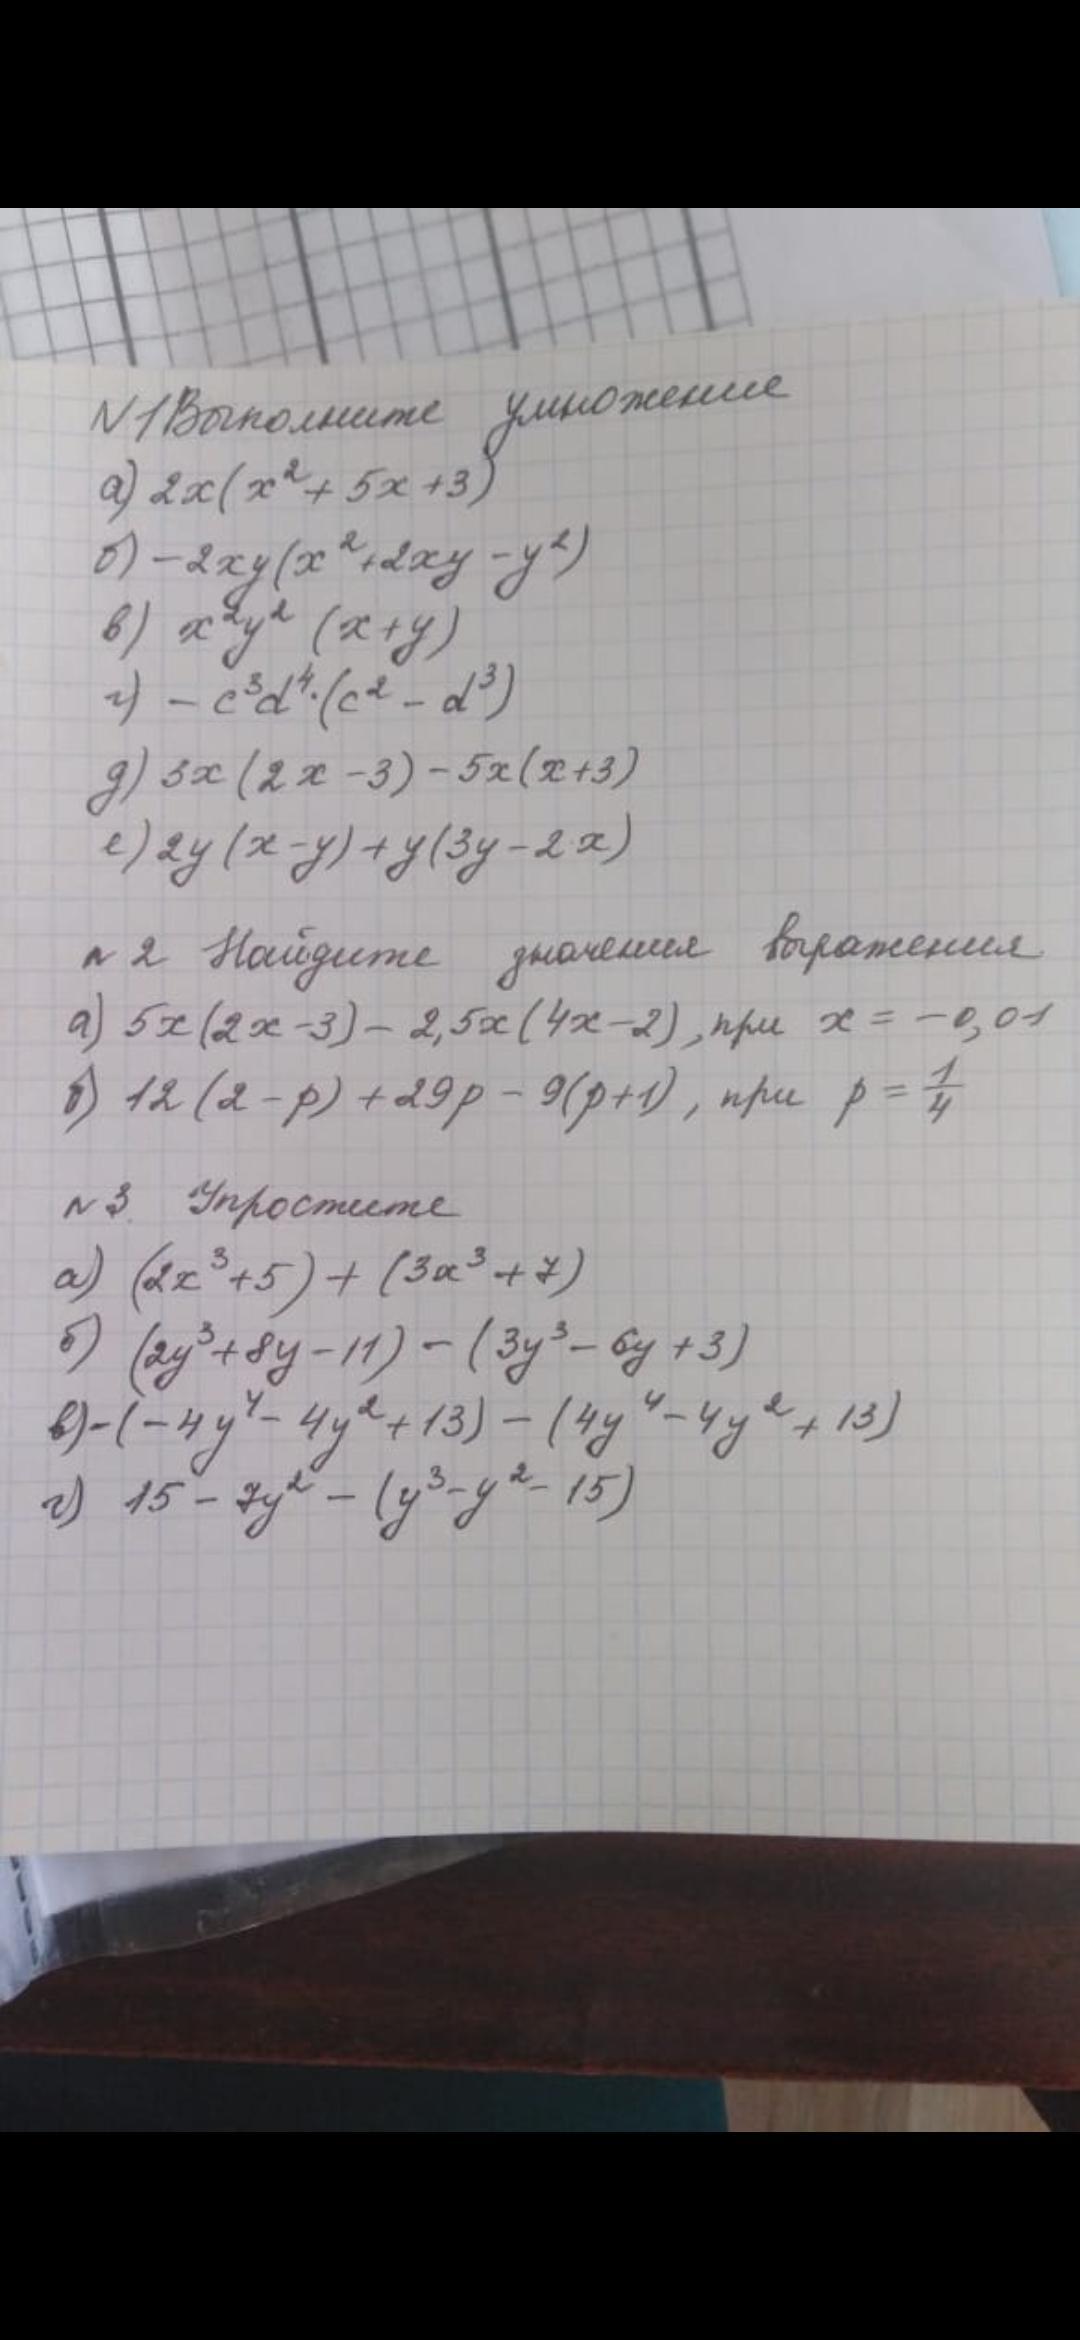 N1 Выполните умножение
а) 2x(x²+5x+3)
б) -2xy(x²+2xy-y²)
в) x²y² (x+y)
г) -c³d⁴·(c²-d³)
д) 3x(2x-3)-5x(x+3)
е) 2y(x-y)+y(3y-2x)
n2 Найдите значения выражения
а) 5x(2x-3)-2,5x(4x-2), при x=-0,01
б) 12(2-p)+29p-9(p+1), при p=1/4
n3. Упростите
а) (2x³+5)+(3x³+7)
б) (2y³+8y-11)-(3y³-6y+3)
в) -(-4y⁴-4y²+13)-(4y⁴-4y²+13)
г) 15-7y²-(y³-y²-15)